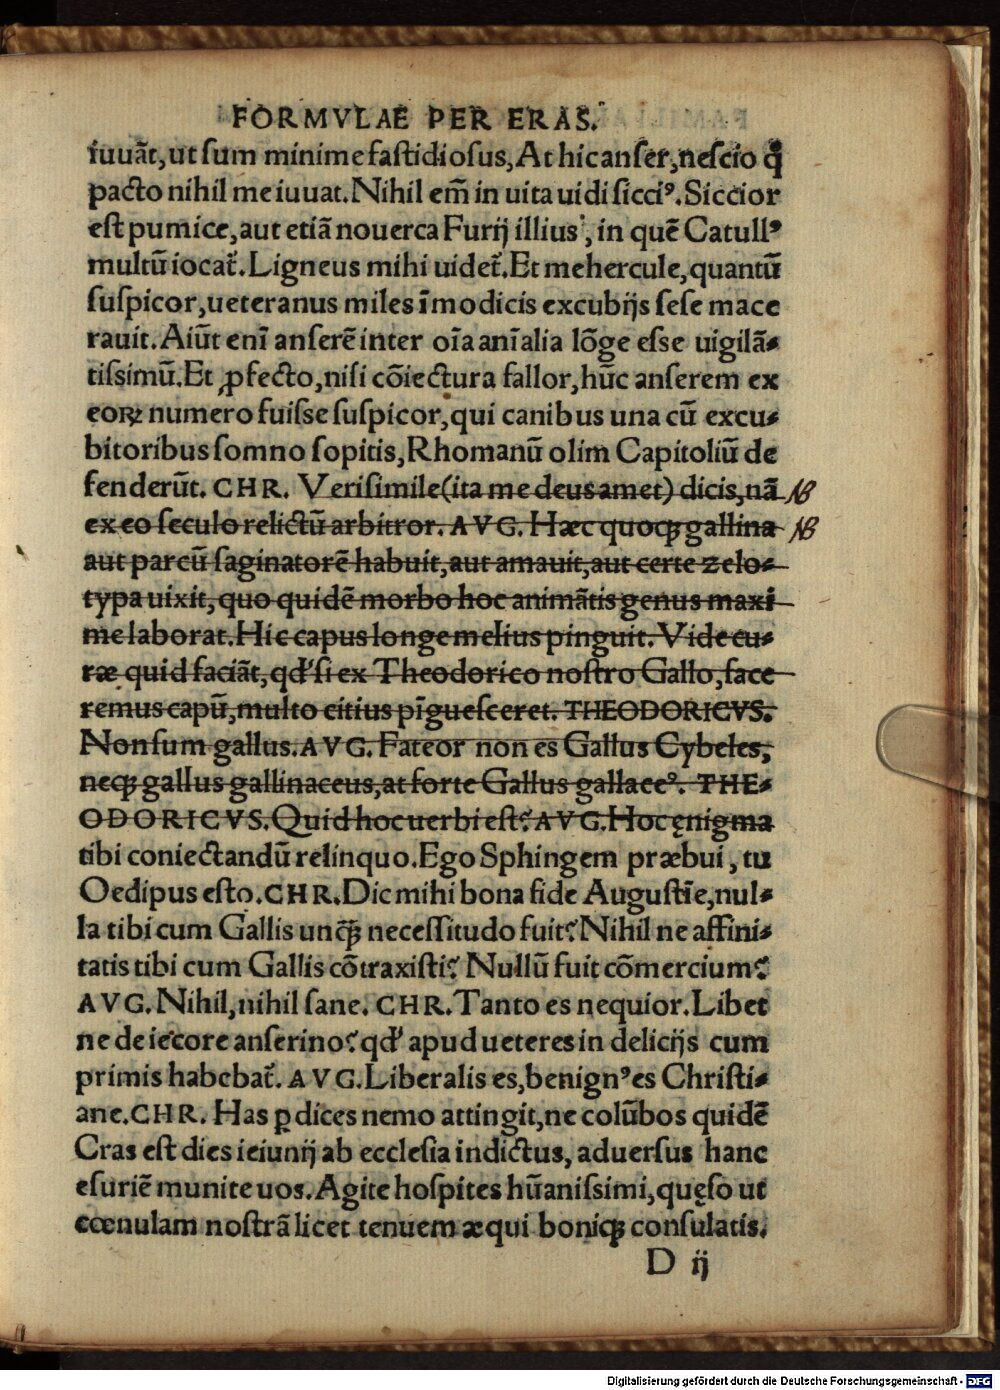 FORMVLAE PER ERAS.
iuuāt, ut ſum minime faſtidioſus, At hic anſer, neſcio q̄
pacto nihil me iuuat. Nihil em̄ in uita uidi ſicciꝰ. Siccior
eſt pumice, aut etiā nouerca Furij illius, in quē Catullꝰ
multū iocat᷑. Ligneus mihi uidet᷑. Et mehercule, quantū
ſuſpicor, ueteranus miles īmodicis excubijs ſeſe mace
rauit. Aiūt enī anſerē inter oīa anīalia lōge eſse uigilā⸗
tiſsimū. Et ꝓfecto, niſi cōiectura fallor, hūc anſerem ex
eorꝝ numero fuiſse ſuſpicor, qui canibus una cū excu⸗
bitoribus ſomno ſopitis, Rhomanū olim Capitoliū de
fenderūt. CHR. Veriſimile (ita me deus amet) dicis, nā NB
ex eo ſeculo relictū arbitror. AVG. Hæc quoqꝫ gallina NB
aut parcū ſaginatorē habuit, aut amauit, aut certe zelo⸗
typa uixit, quo quidē morbo hoc animātis genus maxi
me laborat. Hic capus longe melius pinguit. Vide cu⸗
ræ quid faciāt, qđ ſi ex Theodorico noſtro Gallo, face
remus capū, multo citius pīgueſceret. THEODORICVS.
Non ſum gallus. AVG. Fateor non es Gallus Cybeles,
neqꝫ gallus gallinaceus, at forte Gallus gallaceꝰ. THE⸗
ODORICVS. Quid hoc uerbi eſt? AVG. Hoc ęnigma
tibi coniectandū relinquo. Ego Sphingem præbui, tu
Oedipus eſto. CHR. Dic mihi bona fide Auguſtīe, nul⸗
la tibi cum Gallis unq̄ꝫ neceſſitudo fuit? Nihil ne affini⸗
tatis tibi cum Gallis cōtraxiſti? Nullū fuit cōmercium?
AVG. Nihil, nihil ſane. CHR. Tanto es nequior. Libet
ne de iecore anſerino? qđ apud ueteres in delicijs cum
primis habebat᷑. AVG. Liberalis es, benignꝰ es Chriſti⸗
ane. CHR. Has ꝑdices nemo attingit, ne colūbos quidē
Cras eſt dies ieiunij ab eccleſia indictus, aduerſus hanc
eſuriē munite uos. Agite hoſpites hūaniſsimi, quęſo ut
cœnulam noſtrā licet tenuem æqui boniqꝫ conſulatis.
D ij
Digitalisierung gefördert durch die Deutsche Forschungsgemeinschaft - DFG